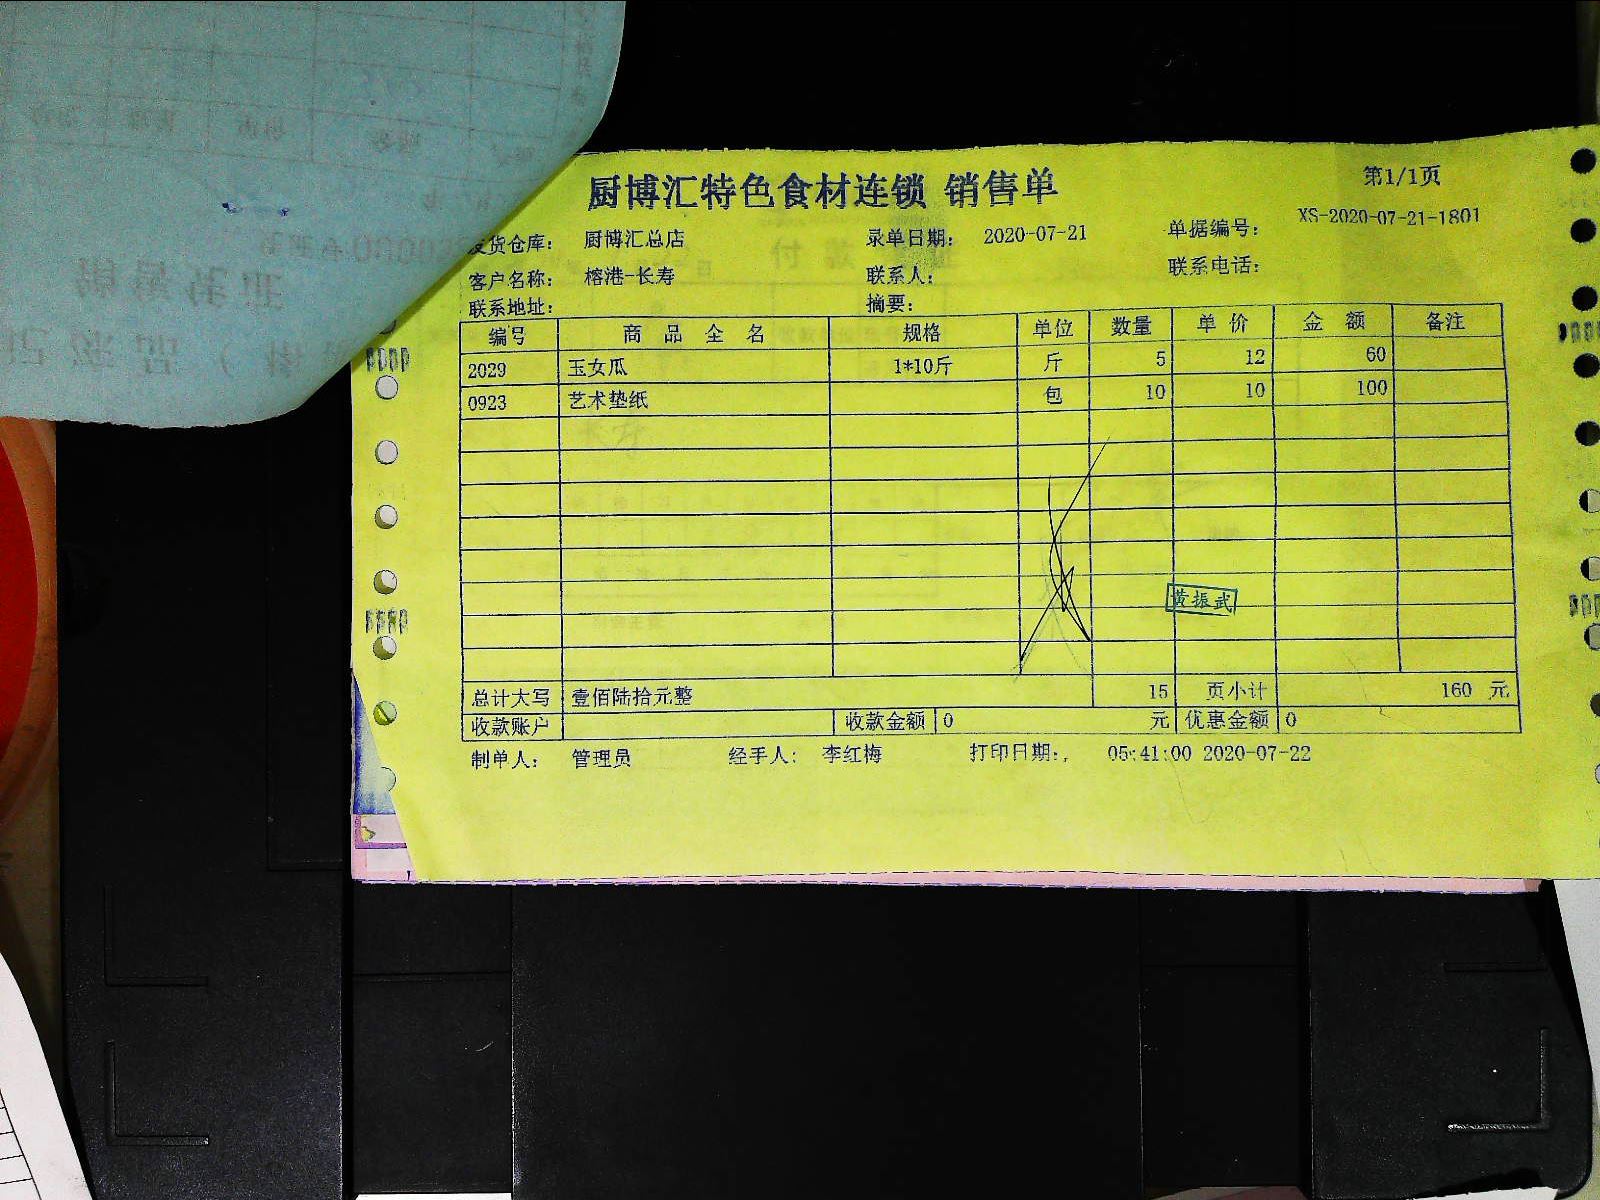 厨博汇特色食材连锁 销售单
第1/1页
发货仓库： 厨博汇总店 录单日期： 2020-07-21 单据编号： XS-2020-07-21-1801
客户名称： 榕港-长寿 联系人： 联系电话：
联系地址： 摘要：
编号 商 品 全 名 规格 单位 数量 单 价 金 额 备注
2029 玉女瓜 1*10斤 斤 5 12 60
0923 艺术垫纸 包 10 10 100
黄振武
总计大写 壹佰陆拾元整 15 页小计 160 元
收款账户 收款金额 0 元 优惠金额 0
制单人： 管理员 经手人： 李红梅 打印日期：, 05:41:00 2020-07-22